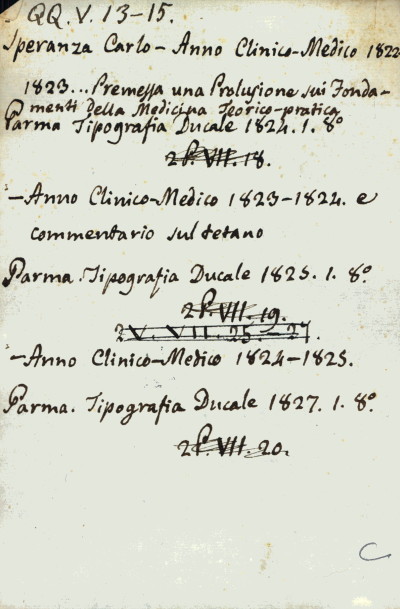 QQ. V. 13-15.
Speranza Carlo - Anno Clinico-Medico 1822
1823... Premessa una Prolusione sui Fonda-
menti della Medicina Teorico-pratica
Parma Tipografia Ducale 1824. 1. 8º
2 P. VII. 18.
- Anno Clinico-Medico 1823-1824. e
commentario sul tetano
Parma. Tipografia Ducale 1825. 1. 8º
2 P. VII. 19.
2 V. VII. 25.-27.
- Anno Clinico-Medico 1824-1825.
Parma. Tipografia Ducale 1827. 1. 8º
2 P. VII. 20.
C